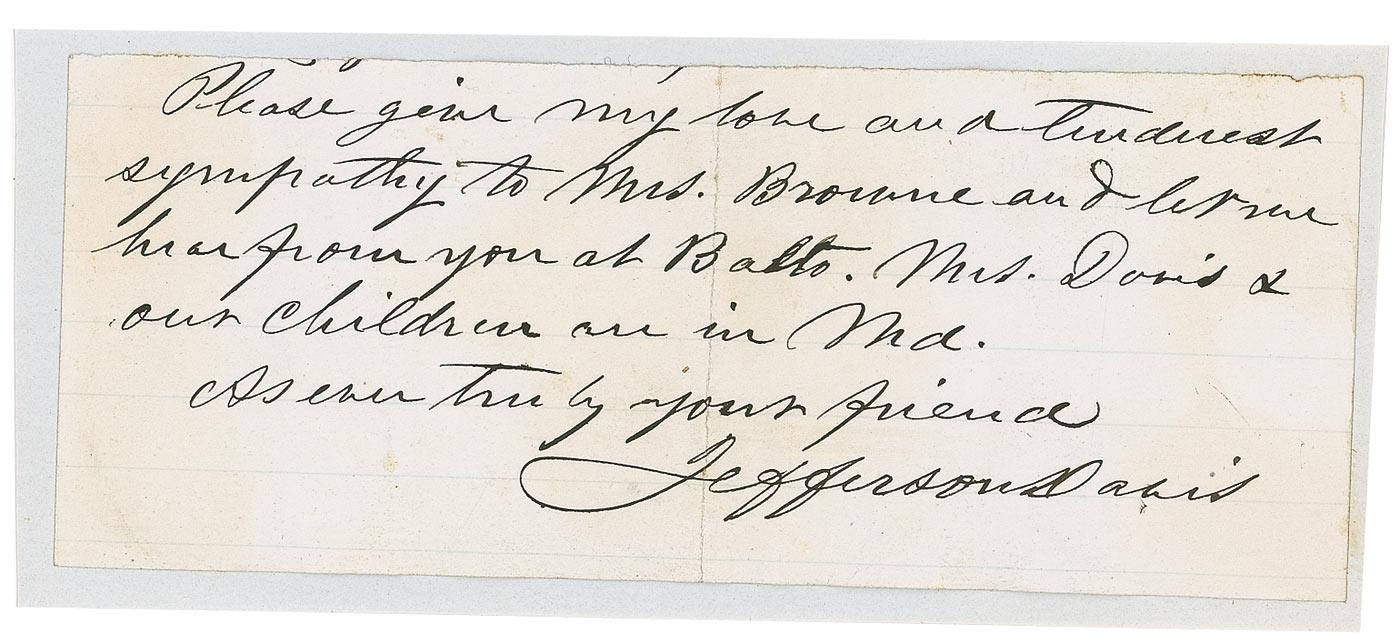 Please give my love and tenderest
sympathy to Mrs. Browne and let me
hear from you at Balto. Mrs. Davis &
our children are in Md.
As ever truly your friend
Jefferson Davis